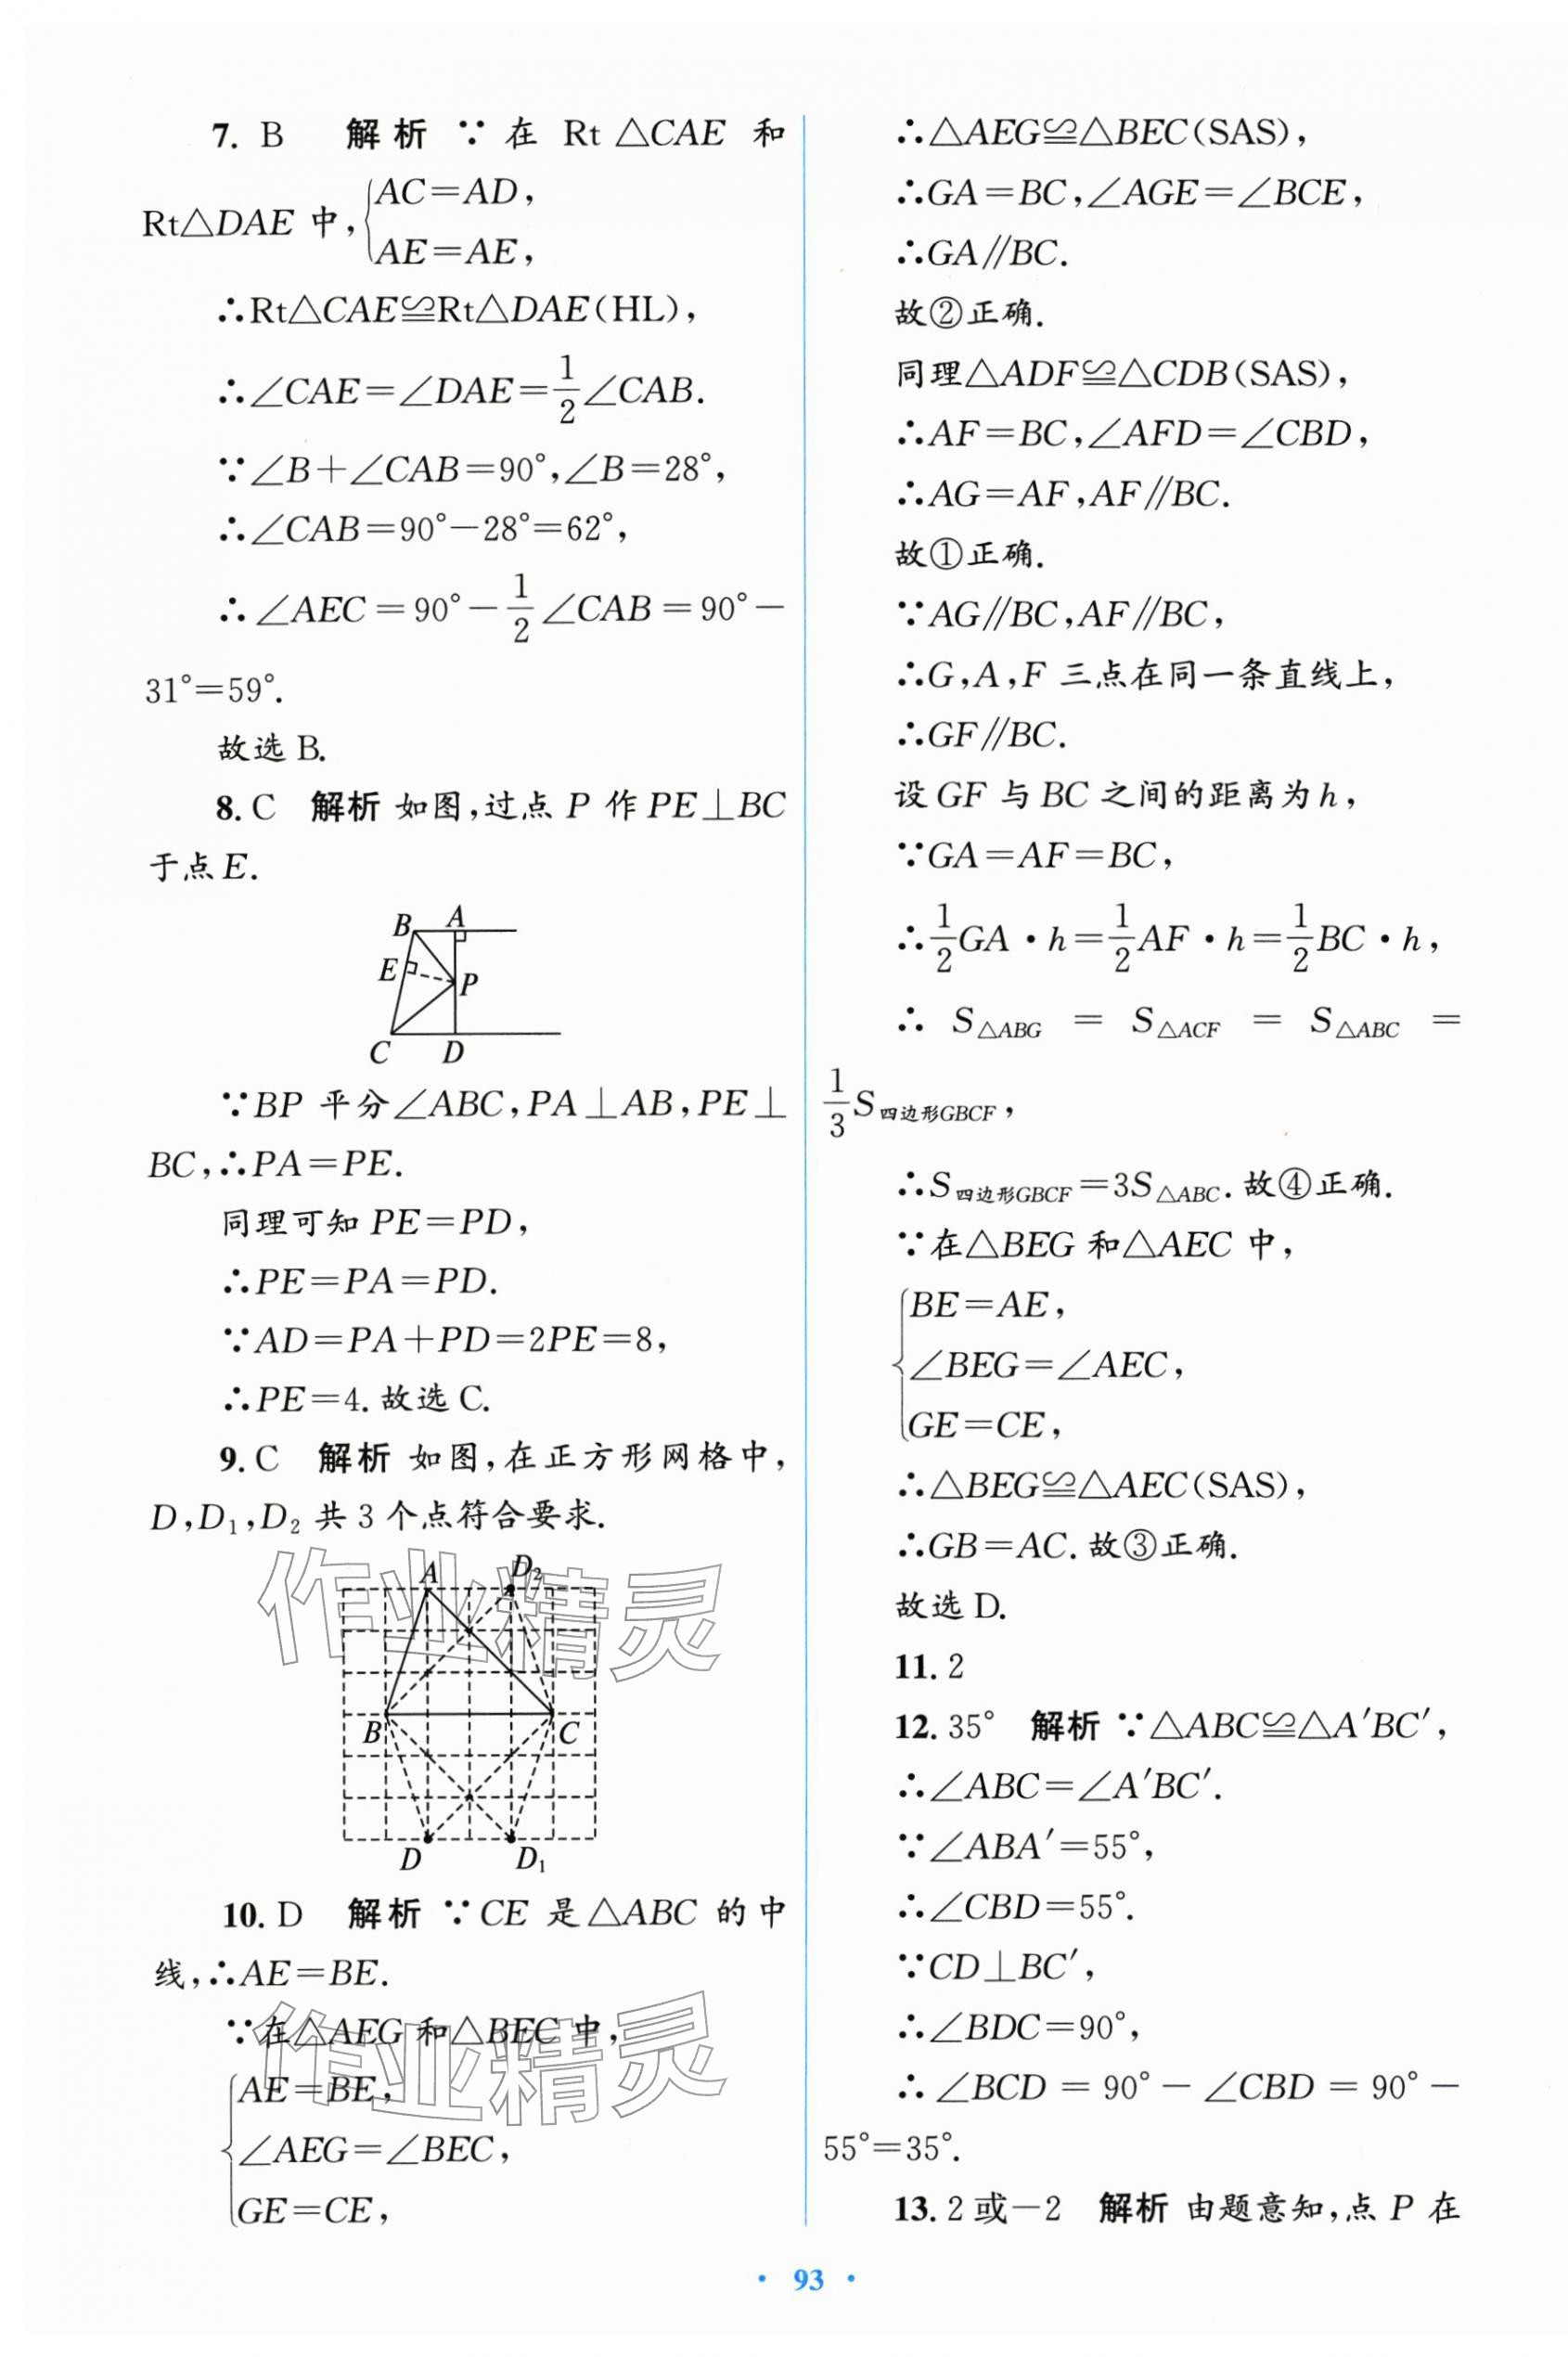 7. B　解析 ∵在 Rt△CAE 和
Rt△DAE 中,{AC=AD,
AE=AE,
∴Rt△CAE≌Rt△DAE(HL),
∴∠CAE=∠DAE=1/2∠CAB.
∵∠B+∠CAB=90°,∠B=28°,
∴∠CAB=90°-28°=62°,
∴∠AEC=90°-1/2∠CAB=90°-
31°=59°.
故选 B.
8. C　解析 如图,过点 P 作 PE⊥BC
于点 E.
B A
E P
C D
∵BP 平分∠ABC,PA⊥AB,PE⊥
BC,∴PA=PE.
同理可知 PE=PD,
∴PE=PA=PD.
∵AD=PA+PD=2PE=8,
∴PE=4. 故选 C.
9. C　解析 如图,在正方形网格中,
D,D₁,D₂ 共 3 个点符合要求.
A D₂
B C
D D₁
10. D　解析 ∵CE 是△ABC 的中
线,∴AE=BE.
∵在△AEG 和△BEC 中,
{AE=BE,
∠AEG=∠BEC,
GE=CE,
∴△AEG≌△BEC(SAS),
∴GA=BC,∠AGE=∠BCE,
∴GA∥BC.
故②正确.
同理△ADF≌△CDB(SAS),
∴AF=BC,∠AFD=∠CBD,
∴AG=AF,AF∥BC.
故①正确.
∵AG∥BC,AF∥BC,
∴G,A,F 三点在同一条直线上,
∴GF∥BC.
设 GF 与 BC 之间的距离为 h,
∵GA=AF=BC,
∴1/2GA·h=1/2AF·h=1/2BC·h,
∴ S△ABG = S△ACF = S△ABC =
1/3S四边形GBCF,
∴S四边形GBCF=3S△ABC. 故④正确.
∵在△BEG 和△AEC 中,
{BE=AE,
∠BEG=∠AEC,
GE=CE,
∴△BEG≌△AEC(SAS),
∴GB=AC. 故③正确.
故选 D.
11. 2
12. 35°　解析 ∵△ABC≌△A′BC′,
∴∠ABC=∠A′BC′.
∵∠ABA′=55°,
∴∠CBD=55°.
∵CD⊥BC′,
∴∠BDC=90°,
∴∠BCD=90°-∠CBD=90°-
55°=35°.
13. 2 或-2　解析 由题意知,点 P 在
· 93 ·
作业精灵
作业精灵